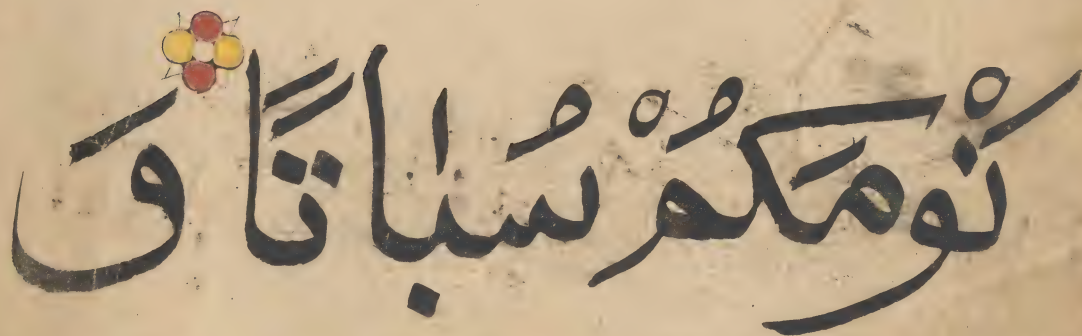 نَوْمَكُمْ سُبَاتًا وَ